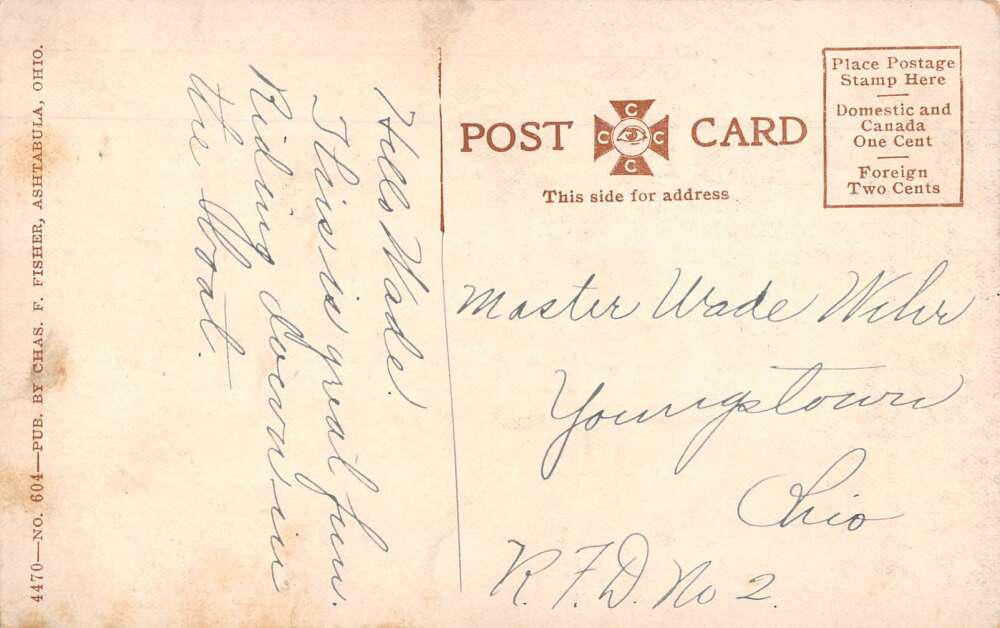 4470—NO. 604—PUB. BY CHAS. F. FISHER, ASHTABULA, OHIO.
Hello Wade!
This is great fun.
Riding down in
the boat.
POST CARD
C
C C
C
This side for address
Place Postage
Stamp Here
Domestic and
Canada
One Cent
Foreign
Two Cents
Master Wade Wehr
Youngstown
Ohio
R.F.D. No 2.